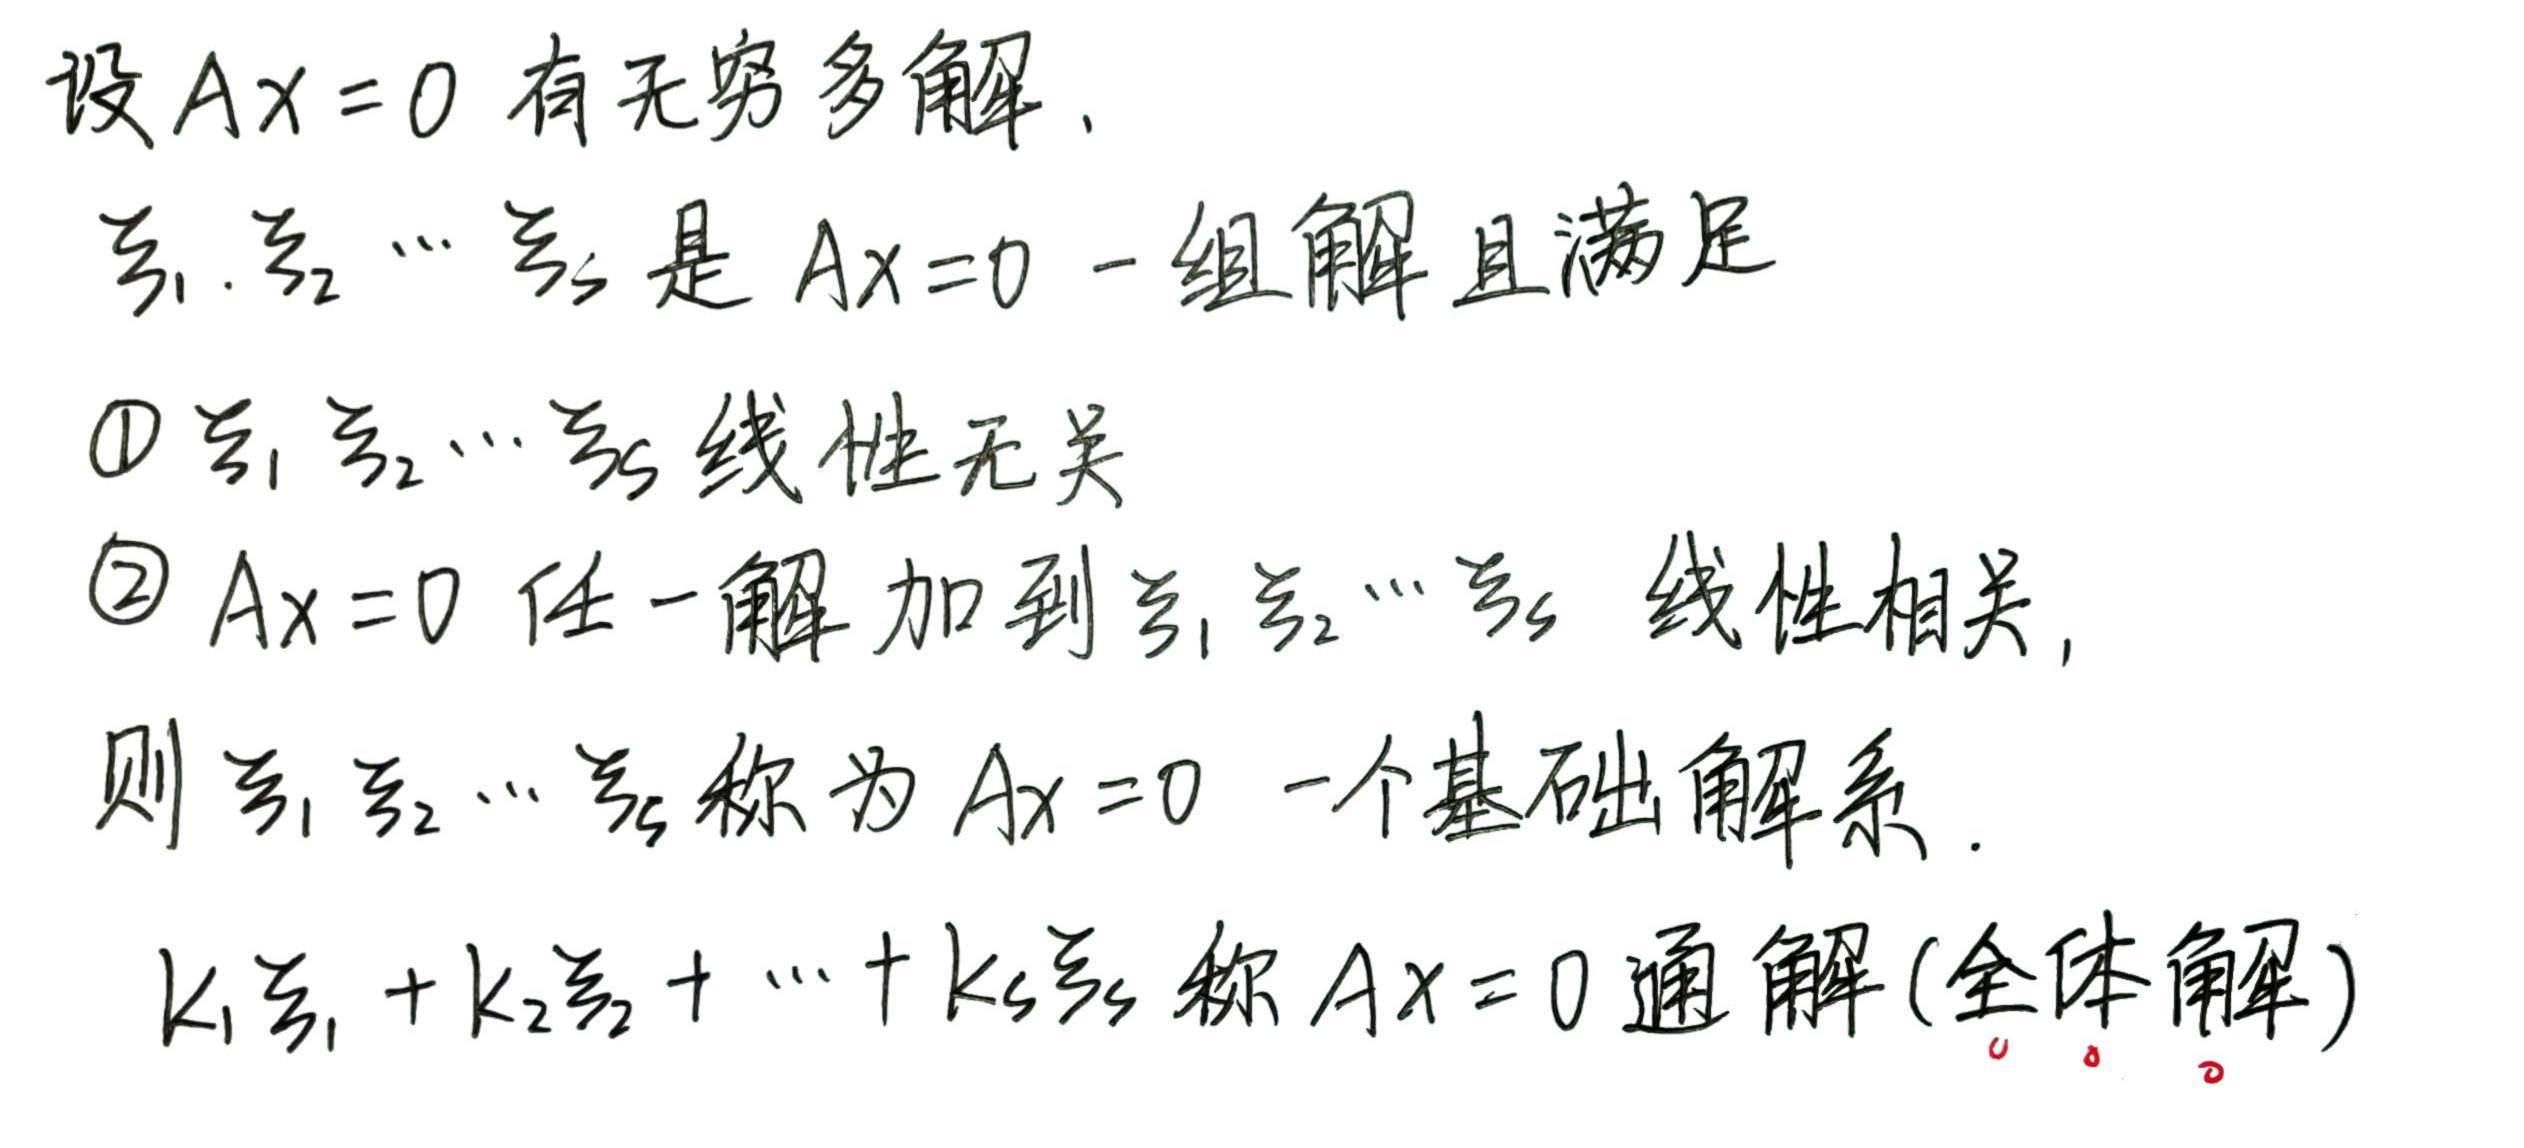 设 Ax=0 有无穷多解、
ξ₁.ξ₂ … ξₛ 是 Ax=0 一组解且满足
① ξ₁ ξ₂ … ξₛ 线性无关
② Ax=0 任一解加到 ξ₁ ξ₂ … ξₛ 线性相关,
则 ξ₁ ξ₂ … ξₛ 称为 Ax=0 一个基础解系.
k₁ξ₁ + k₂ξ₂ + … + kₛξₛ 称 Ax=0 通解(全体解)